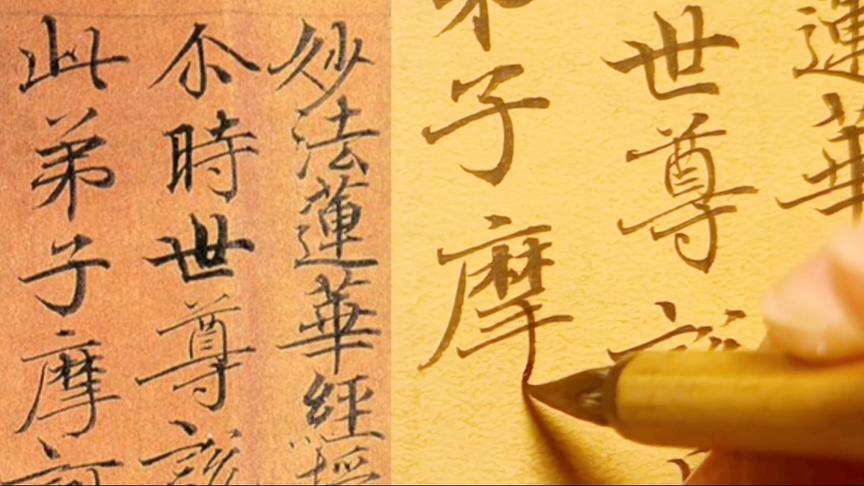 妙法蓮華經
尒時世尊說
此弟子摩
蓮華
世尊
子摩